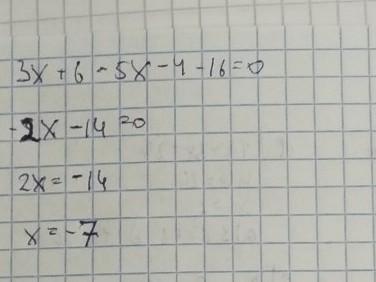 3x + 6 - 5x - 4 - 16 = 0
-2x - 14 = 0
2x = -14
x = -7